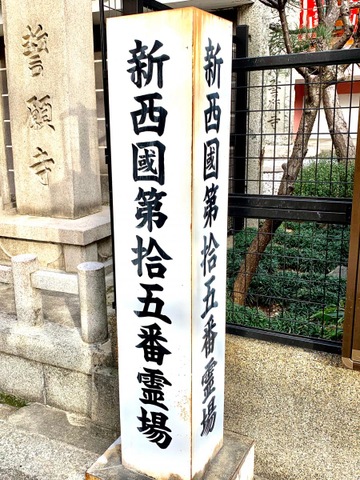 誓願寺
新西國第拾五番霊場
新西國第拾五番霊場